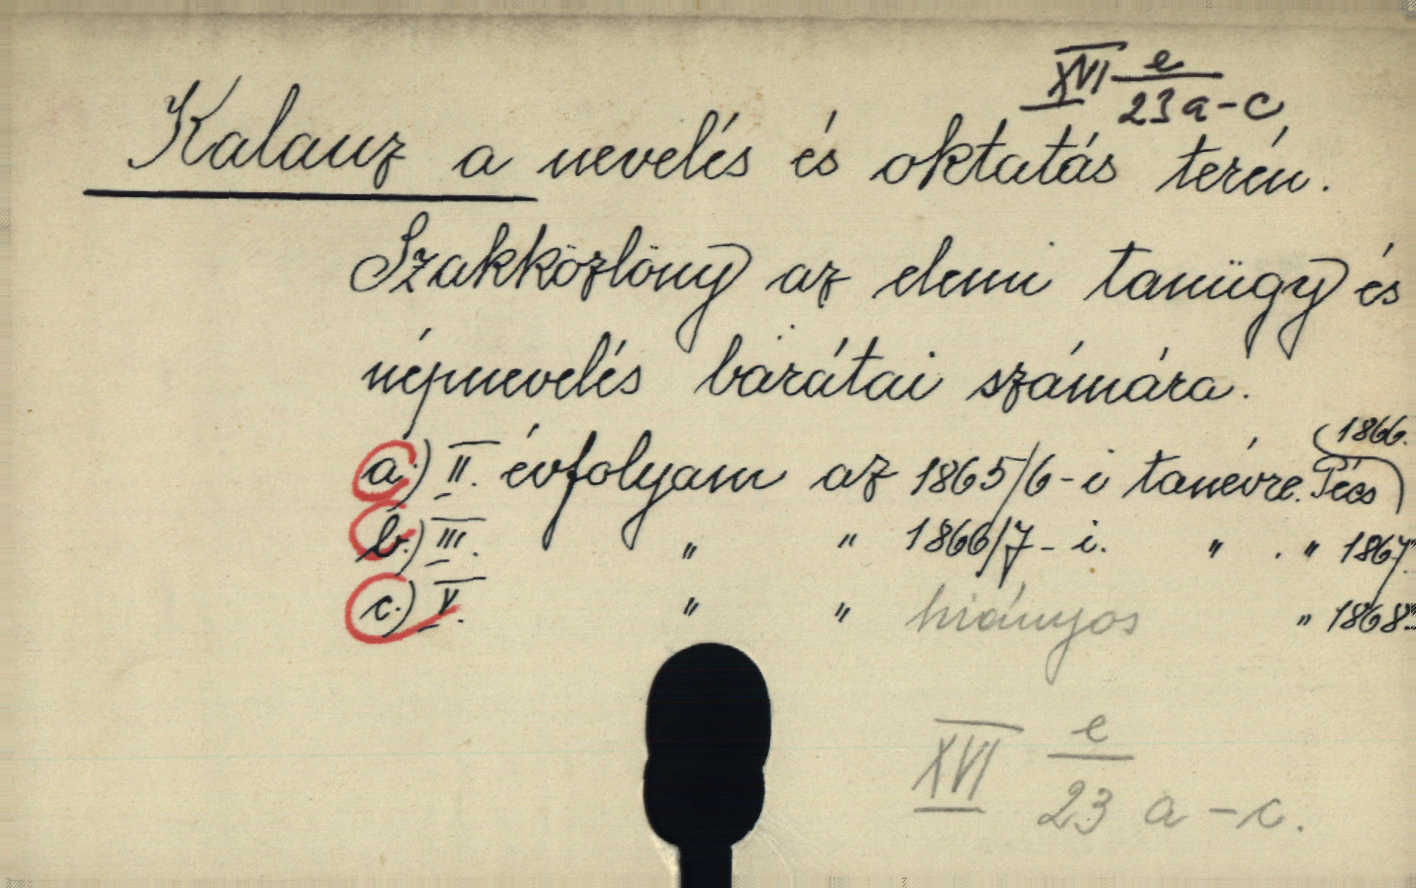 XVI e/23 a-c
Kalauz a nevelés és oktatás terén.
Szakközlöny az elemi tanügy és
népnevelés barátai számára.
1866.
a.) II. évfolyam az 1865/6-i tanévre. Pécs
b.) III. " " 1866/7-i. " . " 1867
c.) V. " " hiányos " 1868
XVI e/23 a-c.